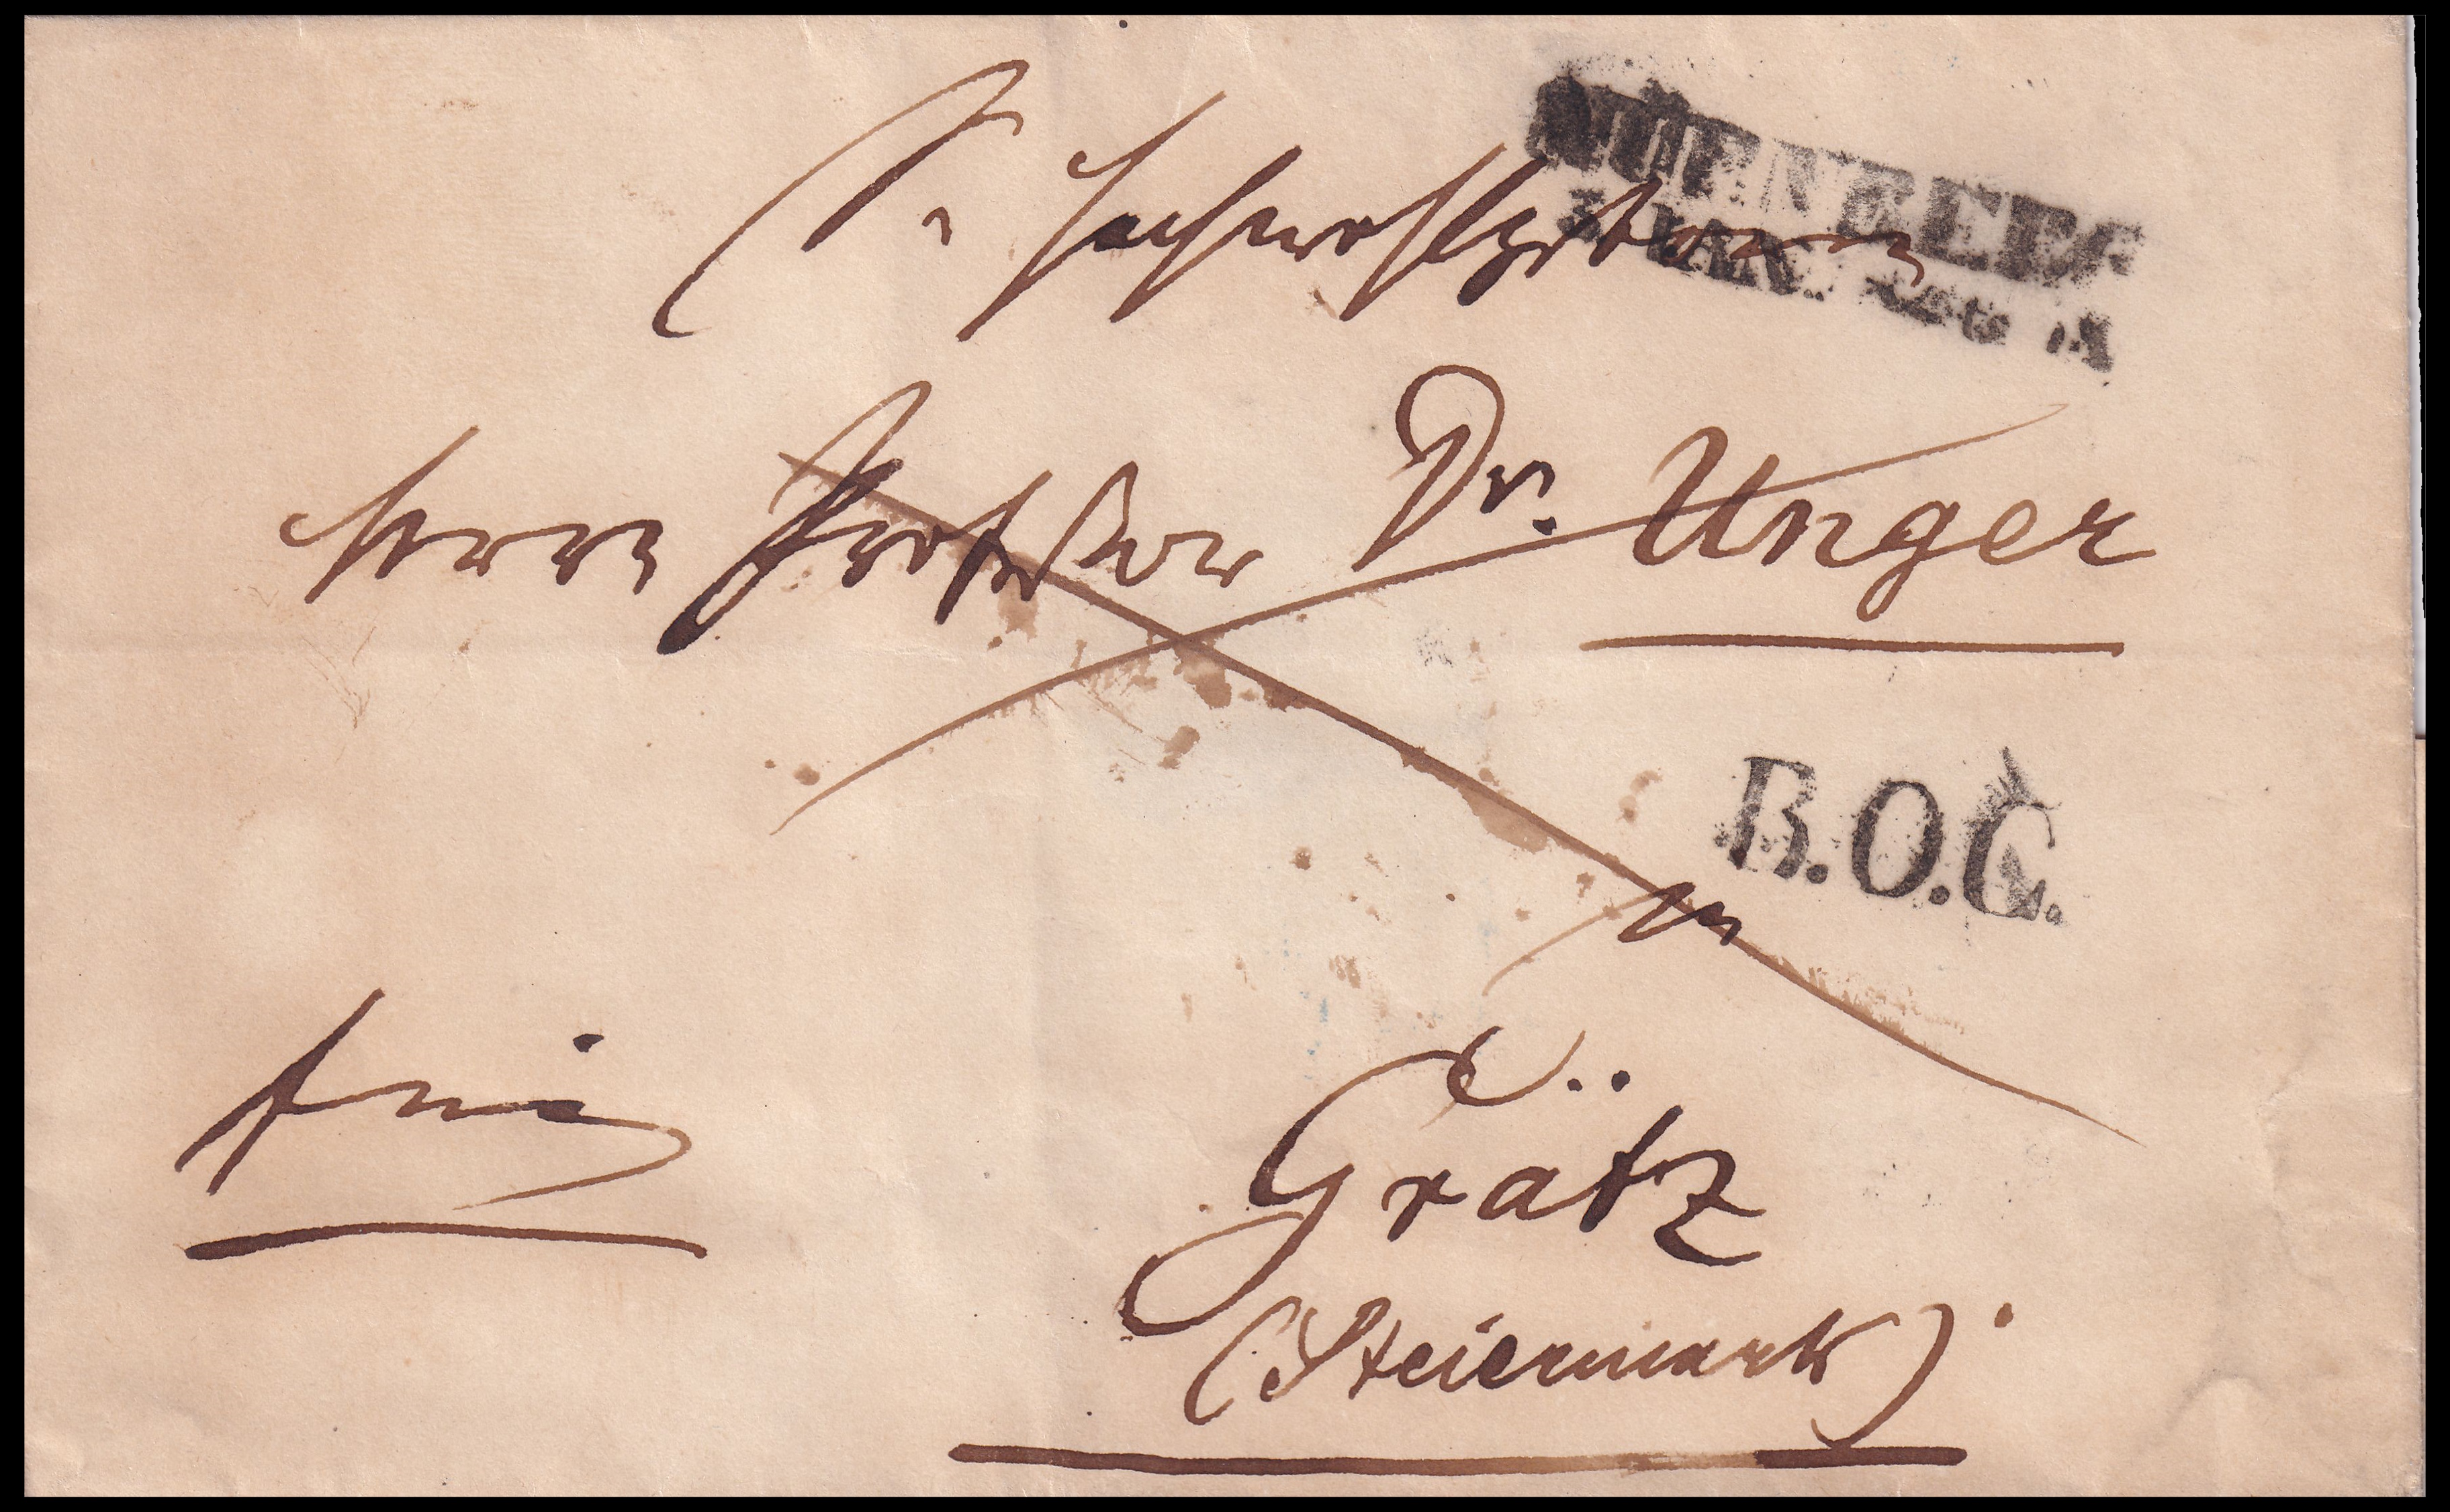 NÜRNBERG
3 JAN.
Sr Hochwohlgeboren
Herrn Professor Dr. Unger
R.O.C.
in
frei
Grätz
(Steiermark).